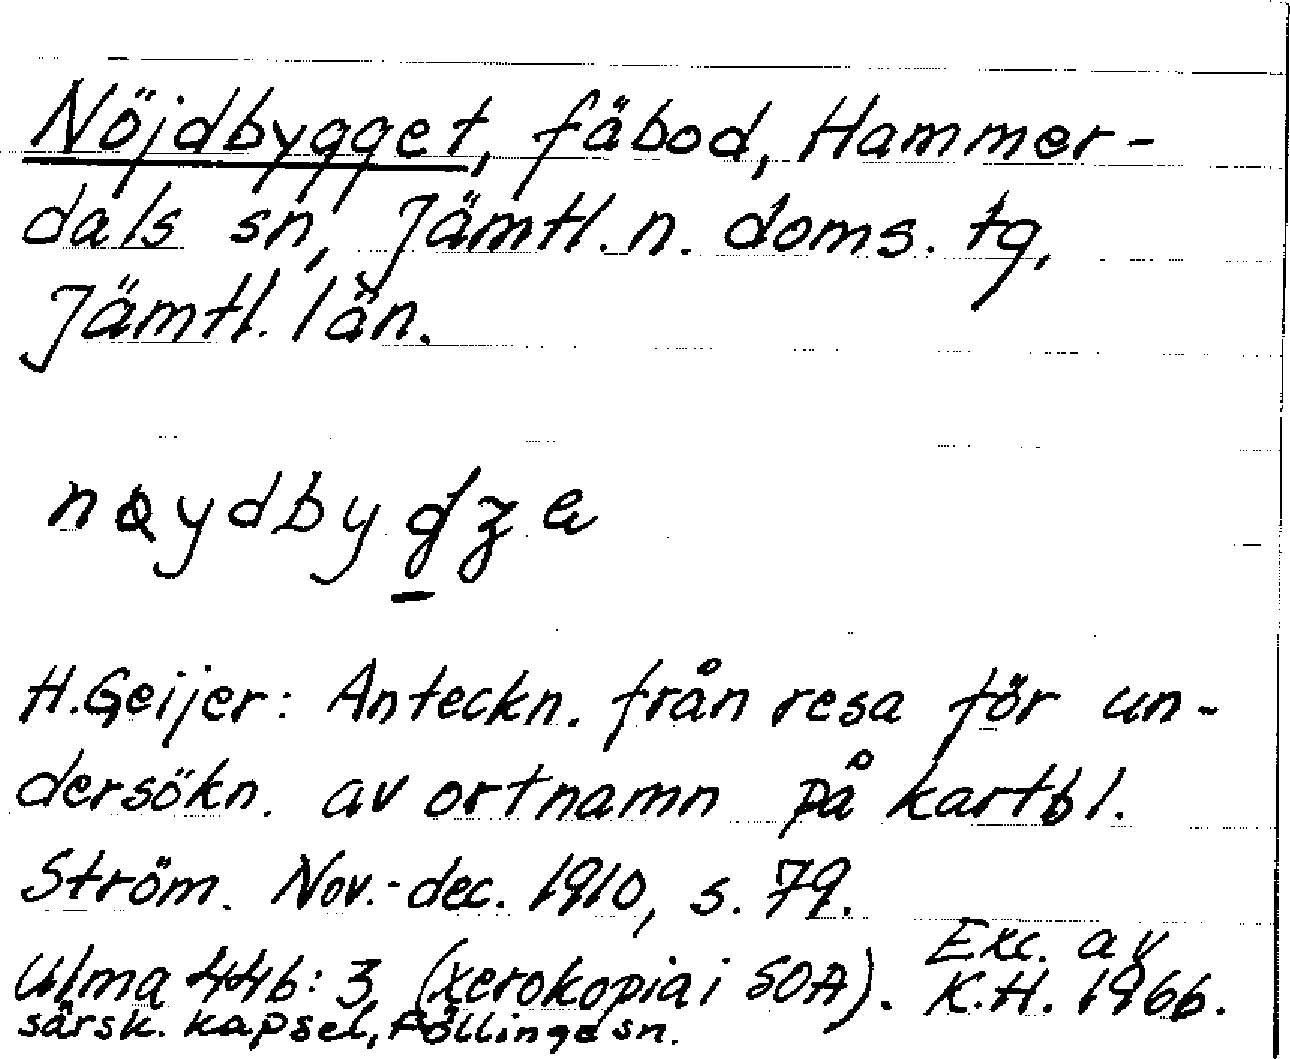 Nöjdbygget, fäbod, Hammer-
dals sn, Jämtl. n. doms. tg,
Jämtl. län.
H. Geijer: Anteckn. från resa för un-
dersökn. av ortnamn på kartbl.
Ström. Nov.-dec. 1910, s. 79.
Ulma 44b: 3 (xerokopia i SOA). Exc. av
särsk. kapsel, Föllinge sn. K.H. 1966.